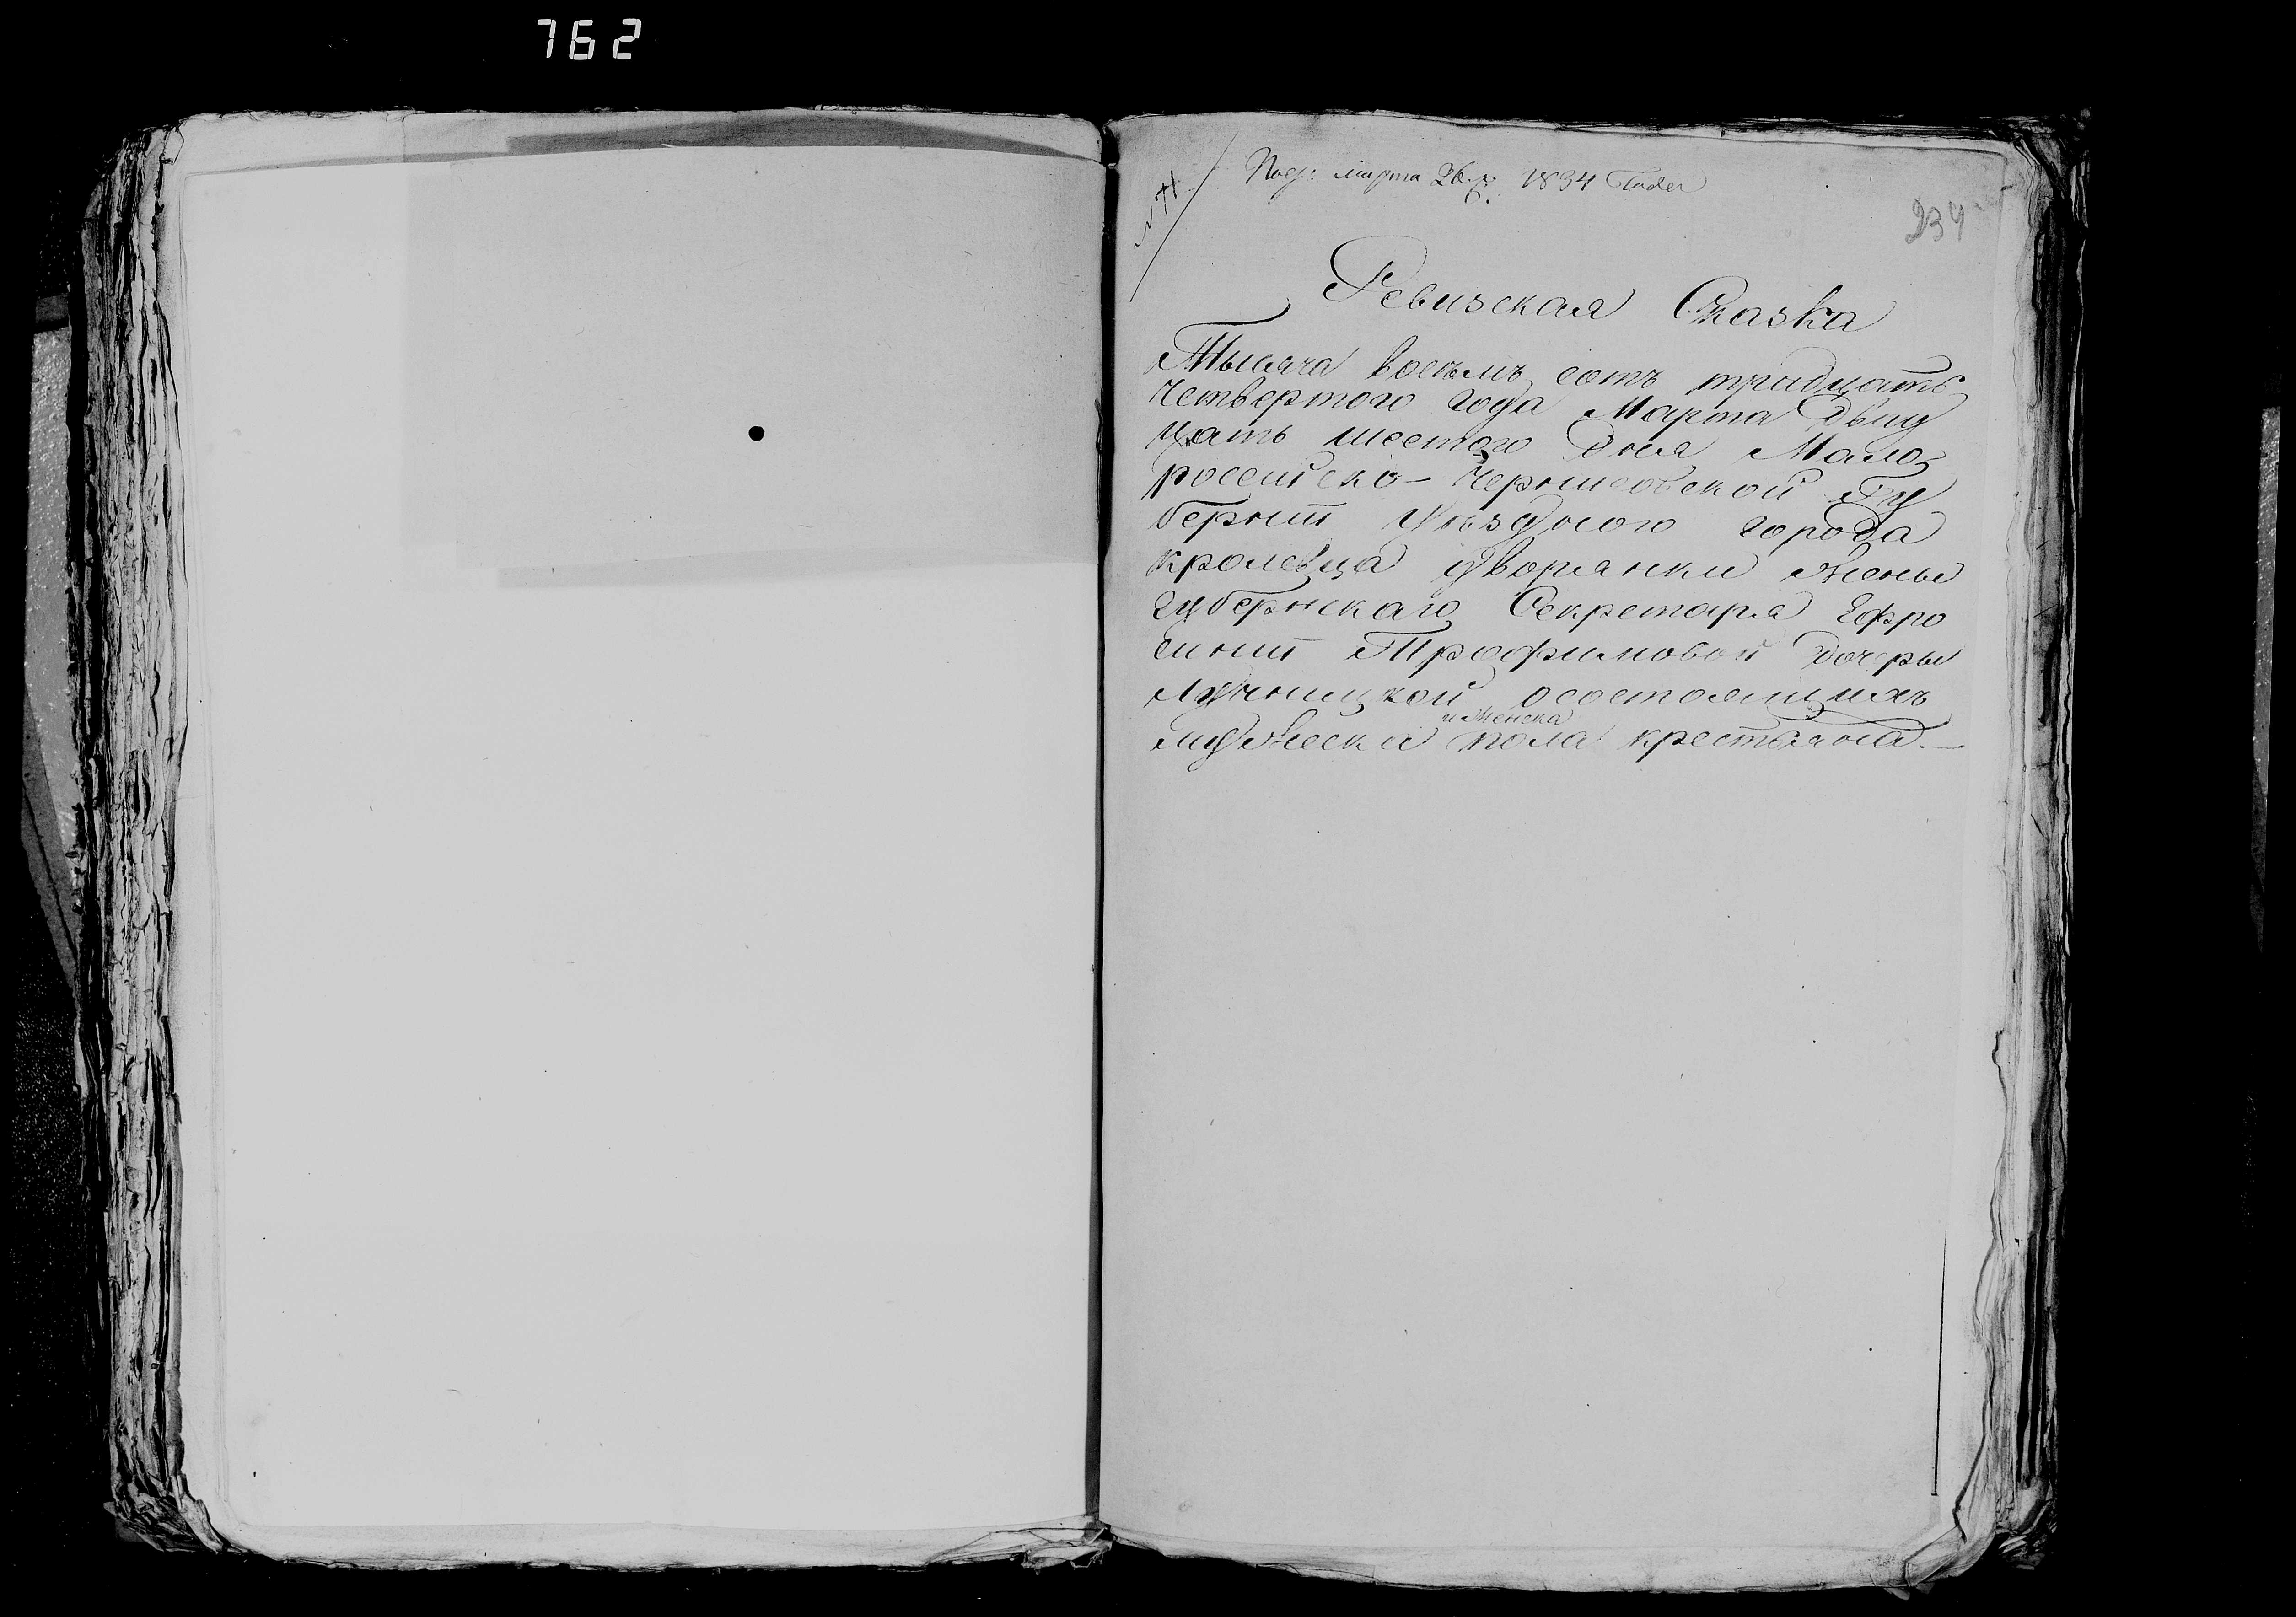 762
N 71
Под: марта 26 д. 1834 года
234
Ревизская Сказка
Тысяча восемь сотъ тридцать
Четвертого года Марта двад
цать шестого дня Мало
росейско-Черниговской Гу
берніи Уездного города
кролевца дворянки жены
губернскаго Секретаря Ефро
синіи Трофимовой дочеры
осостоящихъ
и женска
мужеска пола крестьяна.—